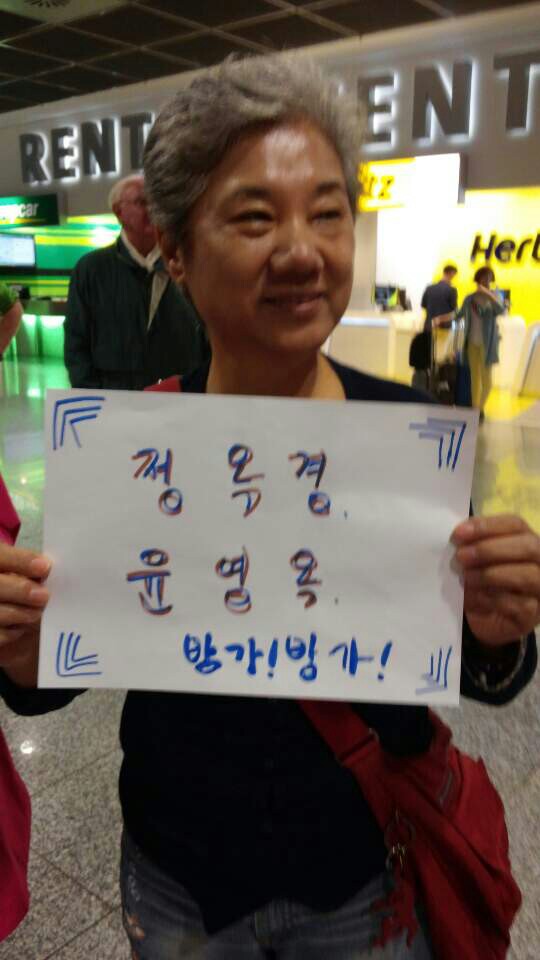 RENT
ENT
car
tz
Hert
정 옥 경.
윤 열 옥.
방가!방가!